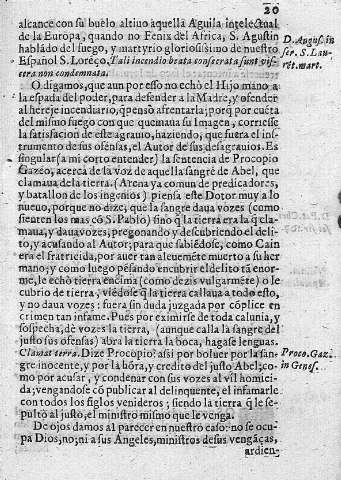 20
alcance con su buelo altiuo aquella Aguila intelectual
de la Europa, quando no Fenix del Africa, S. Agustin
hablãdo del fuego, y martyrio gloriosissimo de nuestro
Español S. Lorẽço. Tali incendio beata consecrata sunt vis-
cera non condemnata.
D. August. in
ser. S. Lau-
rẽt. mart.
O digamos, que aun por esso no echò el Hijo mano a
la espada del poder, para defender a la Madre, y ofender
al hereje incendiario, q̃ penso afrentarla; porq̃ por cuẽta
del mismo fuego con que quemaua su Imagen, corriesse
la satisfacion de este agrauio, haziendo, que fuera el ins-
trumento de sus ofensas, el Autor de sus desagrauios. Es
singular (a mi corto entender) la sentencia de Procopio
Gazeo, acerca de la voz de aquella sangre de Abel, que
clamaua de la tierra. (Arena ya comun de predicadores,
y batallon de los ingenios) piensa este Dotor muy a lo
nueuo, porque no dize, que la sangre daua vozes (como
sienten los mas cõ S. Pablo) sino q̃ la tierra era la q̃ cla-
maua, y dauavozes, pregonando y descubriendo el deli-
to, y acusando al Autor; para que sabiẽdose, como Cain
era el fratricida, por auer tan aleuemẽte muerto a su her
mano; y como luego pẽsando encubrir el delito tã enor-
me, le echò tierra encima (como dezis vulgarmẽte) o le
cubrio de tierra; viẽdose q̃ la tierra callaua a todo esto,
y no daua vozes: fuera sin duda juzgada por cõplice en
crimen tan infame. Pues por eximirse de toda calunia, y
sospecha, dè vozes la tierra, (aunque calla la sangre del
justo sus ofensas) abra la tierra la boca, hagase lenguas.
Clamat terra. Dize Procopio: assi por boluer por la san-
gre inocente, y por la hõra, y credito del justo Abel; co-
mo por acusar, y condenar con sus vozes al vil homici-
da; vengandose cõ publicar al delinquente, el infamarle
con todos los siglos venideros; siendo la tierra q̃ le se-
pultò al justo, el ministro mismo que le venga.
Proco. Gaz.
in Genes.
De ojos damos al parecer en nuestro caso: no se ocu-
pa Dios, no; ni a sus Angeles, ministros de sus vengãças,
ardien-